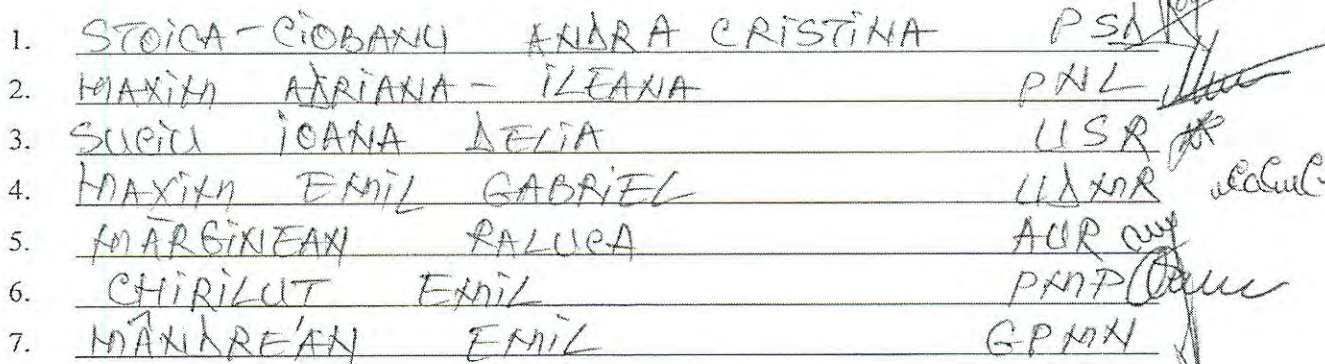 1. STOICA-CIOBANU ANDRA CRISTINA PSD
2. MAXIM ADRIANA-ILEANA PNL
3. SUCIU IOANA DELIA USR
4. MAXIM EMIL GABRIEL UDMR
5. MĂRGINEAN RALUCA AUR
6. CHIRILUT EMIL PMP
7. MÂNDREAN EMIL GPMN